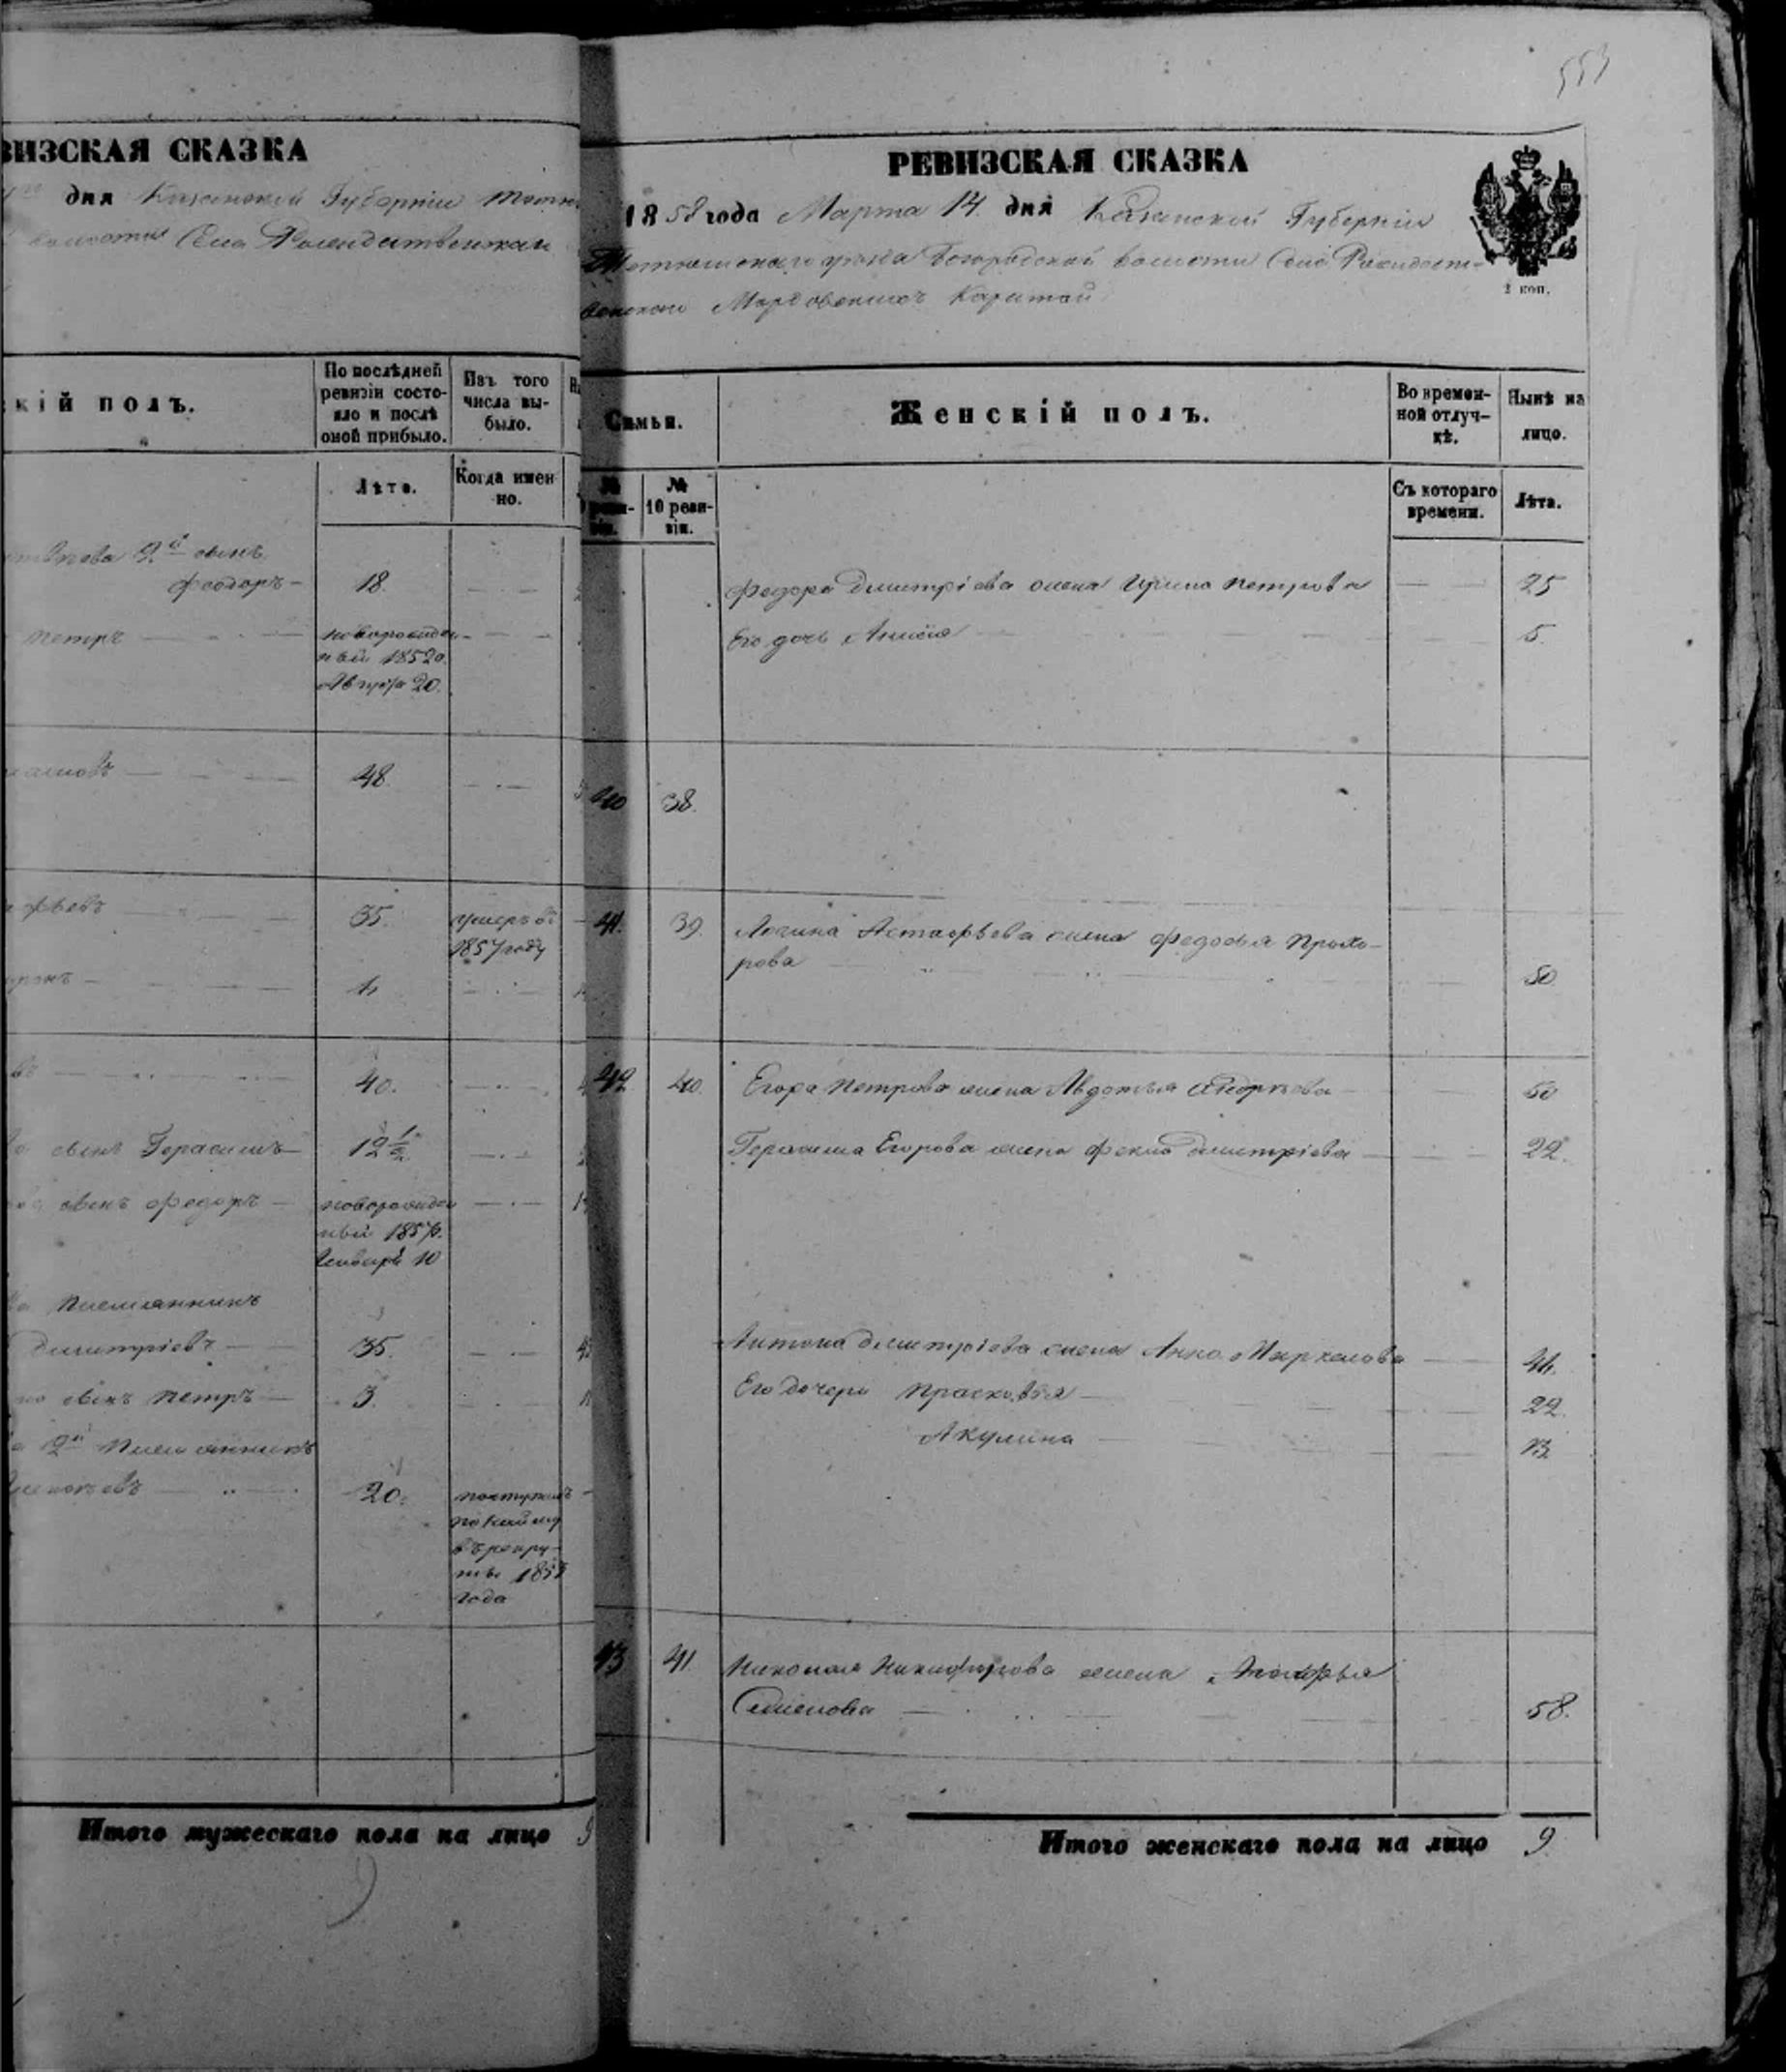 ВИЗСКАЯ СКАЗКА
дня Казанской Губернiи Тетю
волости Села Рождественскаи
кiй полъ.
По послѣдней
ревизiи состо-
яло и послѣ
оной прибыло.
Изъ того
числа вы-
было.
Лѣта.
Когда имен
но.
2й сынъ
Феодоръ 18.
Петръ новорожден-
ный 1852го.
Августа 20.
48.
35. умеръ въ
1857 году
40.
сынъ Герасимъ 12 1/2
сынъ Федоръ новорожден
ный 1857г.
Генваря 10
Племянникъ
Дмитрiевъ 35.
сынъ Петръ 3.
2й Племянникъ
20. поступилъ
по найму
въ рекру-
ты
года
Итого мужескаго пола на лицо 9
553
РЕВИЗСКАЯ СКАЗКА
1858 года Марта 14. дня Казанской Губернiи
Тетюшскаго уѣзда Богородской волости Села Рождест-
венскаго Мордовских Каратай
2 коп.
Семьи.
Женскiй полъ.
Во времен-
ной отлуч-
кѣ.
Нынѣ на
лицо.
№
реви-
зiи.
№
10 реви-
зiи.
Съ котораго
времени.
Лѣта.
Федора Дмитрiева жена Ирина Петрова 25
Его дочь Анисия 5.
40 38.
41. 39. Логина Астафьева жена Федосья Прохо-
рова 50
42 40. Егора Петрова жена Авдотья 50
Герасима Егорова жена Фекла Дмитрiева 22.
Антона Дмитрiева жена Анна Маркелова 44.
Его дочери Прасковья 22.
Акулина 13
43 41. Николая Никифорова жена
Семенова 58.
Итого женскаго пола на лицо 9.